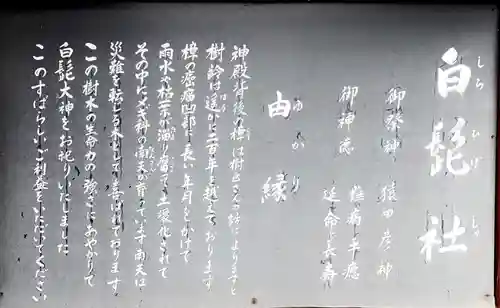 白髭社
しらひげしゃ
御祭神 猿田彦神
御神徳 難病平癒
延命長寿
由緣
ゆかり
神殿背後の樟は樹医さんの話によりますと
樹齢は遥かに二百年を越えております
樟の瘡痛凹部に長い年月をかけて
雨水や枯葉が溜り腐って土壌化されて
その中にメギ科の南天が育っています南天は
災難を転じる木として喜ばれております
この樹木の生命力の強さにあやかりて
白髭大神をお祀りいたしました
このすばらしいご利益をいただいてください